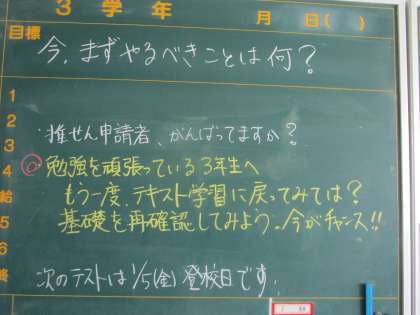 3 学 年　　月　日(　)
目標
今、まずやるべきことは何？
1
2
3
4
給
5
6
・推せん申請者、がんばってますか？
◎勉強を頑張っている3年生へ
もう一度、テキスト学習に戻ってみては？
基礎を再確認してみよう。今がチャンス!!
次のテストは1/5(金)登校日です。